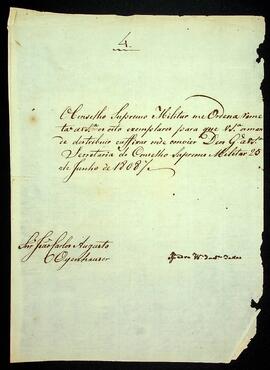 4.
O Conselho Supremo Militar me Ordena reme
ta a V. S.ª os oito exemplares para que V. S.ª aman
de destribuir e affixar onde convier Deos G.e a V. S.ª
Secretaria do Conselho Supremo Militar 25
de Junho de 1808
Snr. João Carlos Augusto
Oyenhauser